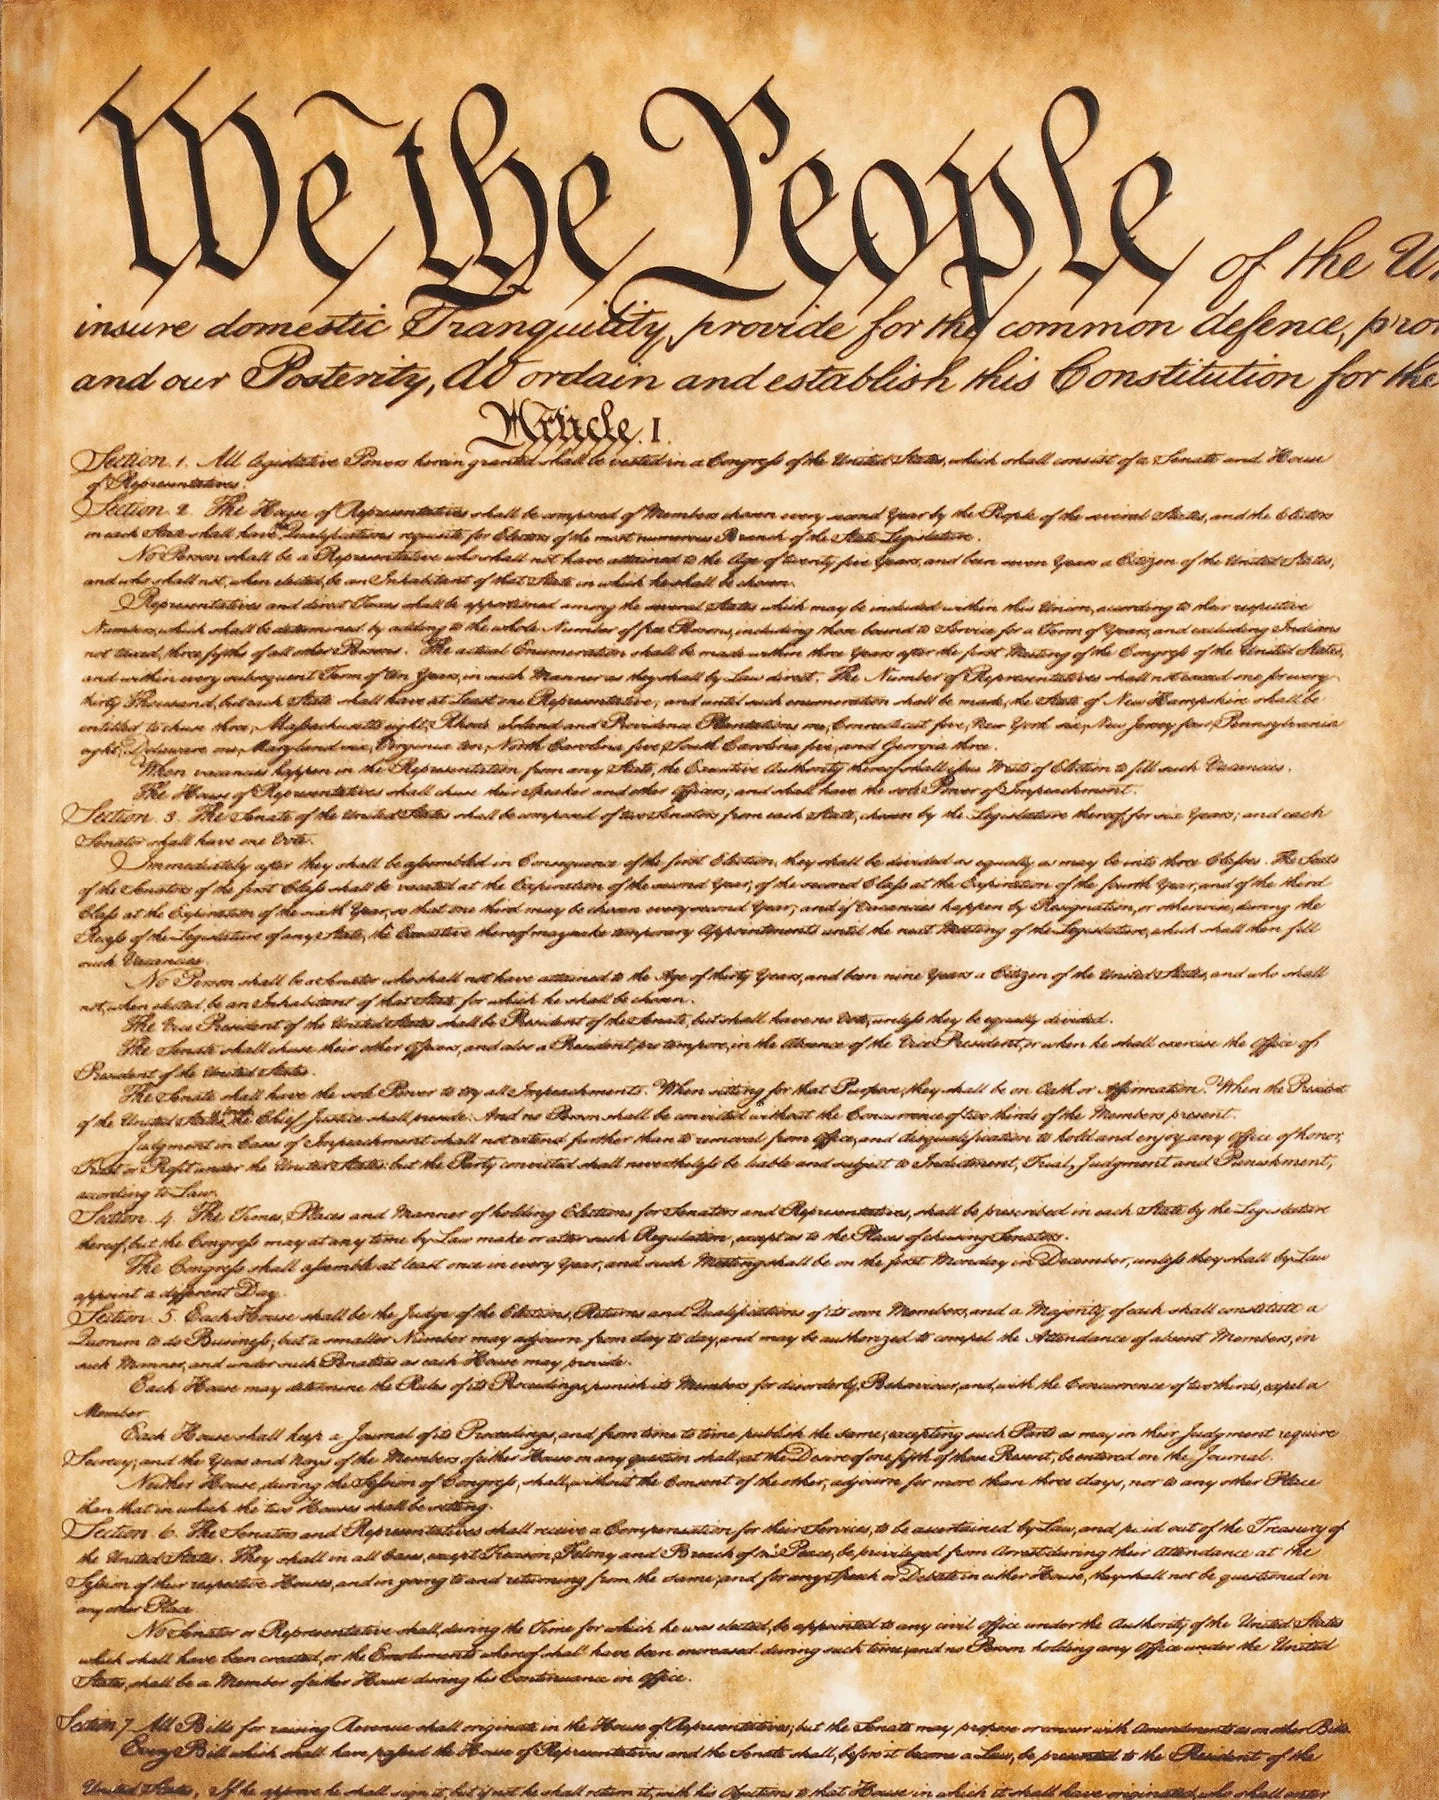 We the People of the Un
insure domestic Tranquility, provide for the common defence, pro
and our Posterity, do ordain and establish this Constitution for the
Article. I.
Section. 1. All legislative Powers herein granted shall be vested in a Congress of the United States, which shall consist of a Senate and House
of Representatives.
Section. 2. The House of Representatives shall be composed of Members chosen every second Year by the People of the several States, and the Electors
in each State shall have Qualifications requisite for Electors of the most numerous Branch of the State Legislature.
No Person shall be a Representative who shall not have attained to the Age of twenty five Years, and been seven Years a Citizen of the United States,
and who shall not, when elected, be an Inhabitant of that State in which he shall be chosen.
Representatives and direct Taxes shall be apportioned among the several States which may be included within this Union, according to their respective
Numbers, which shall be determined by adding to the whole Number of free Persons, including those bound to Service for a Term of Years, and excluding Indians
not taxed, three fifths of all other Persons. The actual Enumeration shall be made within three Years after the first Meeting of the Congress of the United States,
and within every subsequent Term of ten Years, in such Manner as they shall by Law direct. The Number of Representatives shall not exceed one for every
thirty Thousand, but each State shall have at Least one Representative; and until such enumeration shall be made, the State of New Hampshire shall be
entitled to chuse three, Massachusetts eight, Rhode Island and Providence Plantations one, Connecticut five, New York six, New Jersey four, Pennsylvania
eight, Delaware one, Maryland six, Virginia ten, North Carolina five, South Carolina five, and Georgia three.
When vacancies happen in the Representation from any State, the Executive Authority thereof shall issue Writs of Election to fill such Vacancies.
The House of Representatives shall chuse their Speaker and other Officers; and shall have the sole Power of Impeachment.
Section. 3. The Senate of the United States shall be composed of two Senators from each State, chosen by the Legislature thereof, for six Years; and each
Senator shall have one Vote.
Immediately after they shall be assembled in Consequence of the first Election, they shall be divided as equally as may be into three Classes. The Seats
of the Senators of the first Class shall be vacated at the Expiration of the second Year, of the second Class at the Expiration of the fourth Year, and of the third
Class at the Expiration of the sixth Year, so that one third may be chosen every second Year; and if Vacancies happen by Resignation, or otherwise, during the
Recess of the Legislature of any State, the Executive thereof may make temporary Appointments until the next Meeting of the Legislature, which shall then fill
such Vacancies.
No Person shall be a Senator who shall not have attained to the Age of thirty Years, and been nine Years a Citizen of the United States, and who shall
not, when elected, be an Inhabitant of that State for which he shall be chosen.
The Vice President of the United States shall be President of the Senate, but shall have no Vote, unless they be equally divided.
The Senate shall chuse their other Officers, and also a President pro tempore, in the Absence of the Vice President, or when he shall exercise the Office of
President of the United States.
The Senate shall have the sole Power to try all Impeachments. When sitting for that Purpose, they shall be on Oath or Affirmation. When the President
of the United States, the Chief Justice shall preside: And no Person shall be convicted without the Concurrence of two thirds of the Members present.
Judgment in Cases of Impeachment shall not extend further than to removal from Office, and disqualification to hold and enjoy any Office of honor,
Trust or Profit under the United States: but the Party convicted shall nevertheless be liable and subject to Indictment, Trial, Judgment and Punishment,
according to Law.
Section. 4. The Times, Places and Manner of holding Elections for Senators and Representatives, shall be prescribed in each State by the Legislature
thereof; but the Congress may at any time by Law make or alter such Regulation, except as to the Places of chusing Senators.
The Congress shall assemble at least once in every Year, and such Meeting shall be on the first Monday in December, unless they shall by Law
appoint a different Day.
Section. 5. Each House shall be the Judge of the Elections, Returns and Qualifications of its own Members, and a Majority of each shall constitute a
Quorum to do Business; but a smaller Number may adjourn from day to day, and may be authorized to compel the Attendance of absent Members, in
such Manner, and under such Penalties as each House may provide.
Each House may determine the Rules of its Proceedings, punish its Members for disorderly Behaviour, and, with the Concurrence of two thirds, expel a
Member.
Each House shall keep a Journal of its Proceedings, and from time to time publish the same, excepting such Parts as may in their Judgment require
Secrecy; and the Yeas and Nays of the Members of either House on any question shall, at the Desire of one fifth of those Present, be entered on the Journal.
Neither House, during the Session of Congress, shall, without the Consent of the other, adjourn for more than three days, nor to any other Place
than that in which the two Houses shall be sitting.
Section. 6. The Senators and Representatives shall receive a Compensation for their Services, to be ascertained by Law, and paid out of the Treasury of
the United States. They shall in all Cases, except Treason, Felony and Breach of the Peace, be privileged from Arrest during their Attendance at the
Session of their respective Houses, and in going to and returning from the same; and for any Speech or Debate in either House, they shall not be questioned in
any other Place.
No Senator or Representative shall, during the Time for which he was elected, be appointed to any civil Office under the Authority of the United States
which shall have been created, or the Emoluments whereof shall have been increased during such time; and no Person holding any Office under the United
States, shall be a Member of either House during his Continuance in Office.
Section 7. All Bills for raising Revenue shall originate in the House of Representatives; but the Senate may propose or concur with Amendments as on other Bills.
Every Bill which shall have passed the House of Representatives and the Senate shall, before it become a Law, be presented to the President of the
United States, If he approve he shall sign it, but if not he shall return it, with his Objections to that House in which it shall have originated, who shall enter